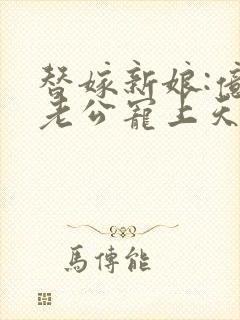 替嫁新娘:億
老公寵上天
馬傳能